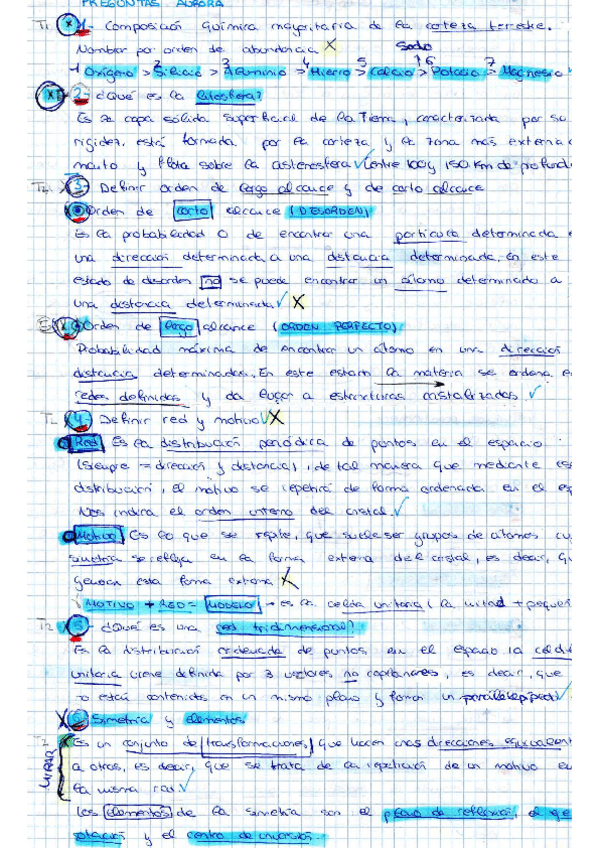 PREGUNTAS AURORA
T1 * 1- Composición química mayoritaria de la corteza terrestre.
Nombrar por orden de abundancia X Sodio
1 Oxígeno > 2 Silicio > 3 Aluminio > 4 Hierro > 5 Calcio > 6 Potasio > 7 Magnesio
* 2- ¿Qué es la litosfera?
Es la capa sólida superficial de la Tierra, caracterizada por su
rigidez. está formada por la corteza y la zona más externa
manto y flota sobre la astenosfera (entre 100 y 150 Km de profund
T2 3- Definir orden de largo alcance y de corto alcance
Orden de corto alcance (DESORDEN)
Es la probabilidad 0 de encontrar una partícula determinada e
una dirección determinada a una distancia determinada. En este
estado de desorden no se puede encontrar un átomo determinado a
una distancia determinada ✓ X
Orden de largo alcance (ORDEN PERFECTO)
Probabilidad máxima de encontrar un átomo en una dirección
distancia determinadas. En este estado la materia se ordena e
redes definidas y da lugar a estructuras cristalizadas ✓
T2 4- Definir red y motivo ✓ X
Red Es la distribución periódica de puntos en el espacio
(siempre = dirección y distancia), de tal manera que mediante es
distribución, el motivo se repetirá de forma ordenada en el esp
Nos indica el orden interno del cristal. ✓
Motivo Es lo que se repite, que suele ser grupos de átomos cu
simetría se refleja en la forma externa del cristal, es decir, qu
generan esta forma externa X
MOTIVO + RED = MODELO → es la celda unitaria (la unidad + pequeñ
T2 5- ¿Qué es una red tridimensional?
Es la distribución ordenada de puntos en el espacio la celda
unitaria viene definida por 3 vectores no coplanares, es decir, que
no están contenidos en un mismo plano y forman un paralelepípedo ✓
X 6 Simetría y elementos
T2 Es un conjunto de transformaciones que hacen unas direcciones equivalent
MIRAR
a otras, es decir, que se trata de la repetición de un motivo en
la misma red. ✓
Los elementos de la simetría son el plano de reflexión, el eje
rotación y el centro de inversión.